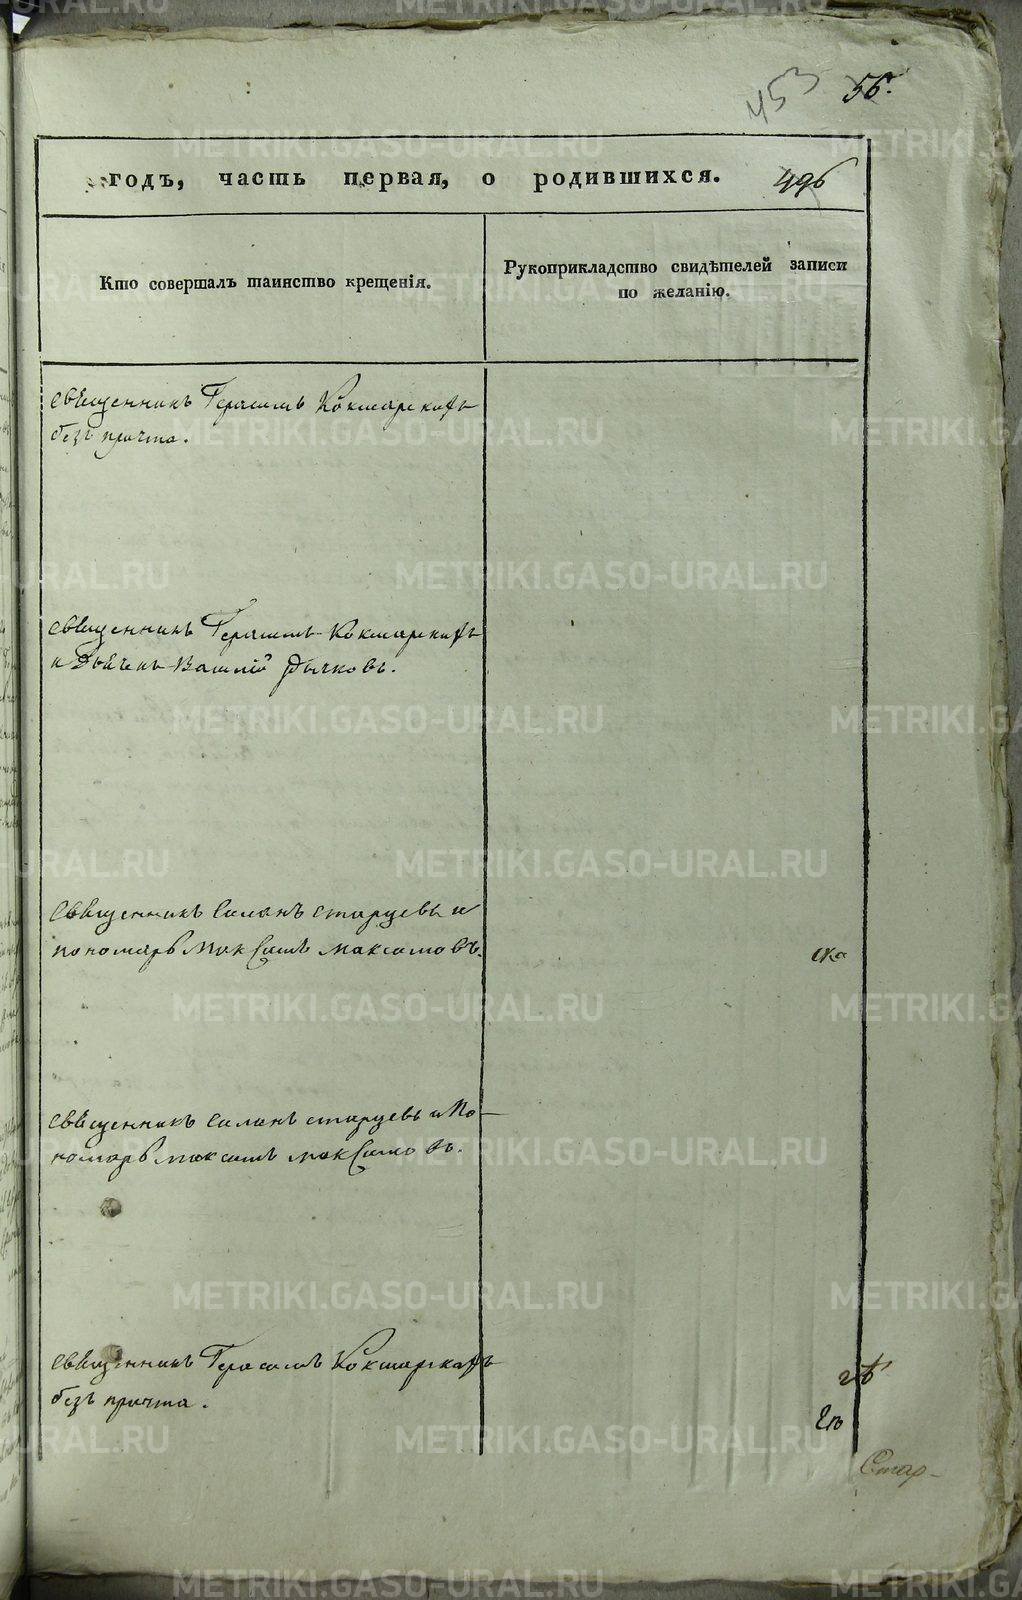 453
56.
годъ, часть первая, о родившихся.
496
Кто совершалъ таинство крещенія.
Рукоприкладство свидѣтелей записи
по желанію.
Священникъ Герасимъ Кокшарскихъ
безъ причта.
Священникъ Герасимъ Кокшарскихъ
и Дьячекъ Василій
Священникъ Симонъ Старцевъ и
пономарь Максимъ Максимовъ.
ска
Священникъ Симонъ Старцевъ и По-
номарь Максимъ Максимовъ.
Священникъ Герасимъ Кокшарскихъ
безъ причта.
Стар-
METRIKI.GASO-URAL.RU